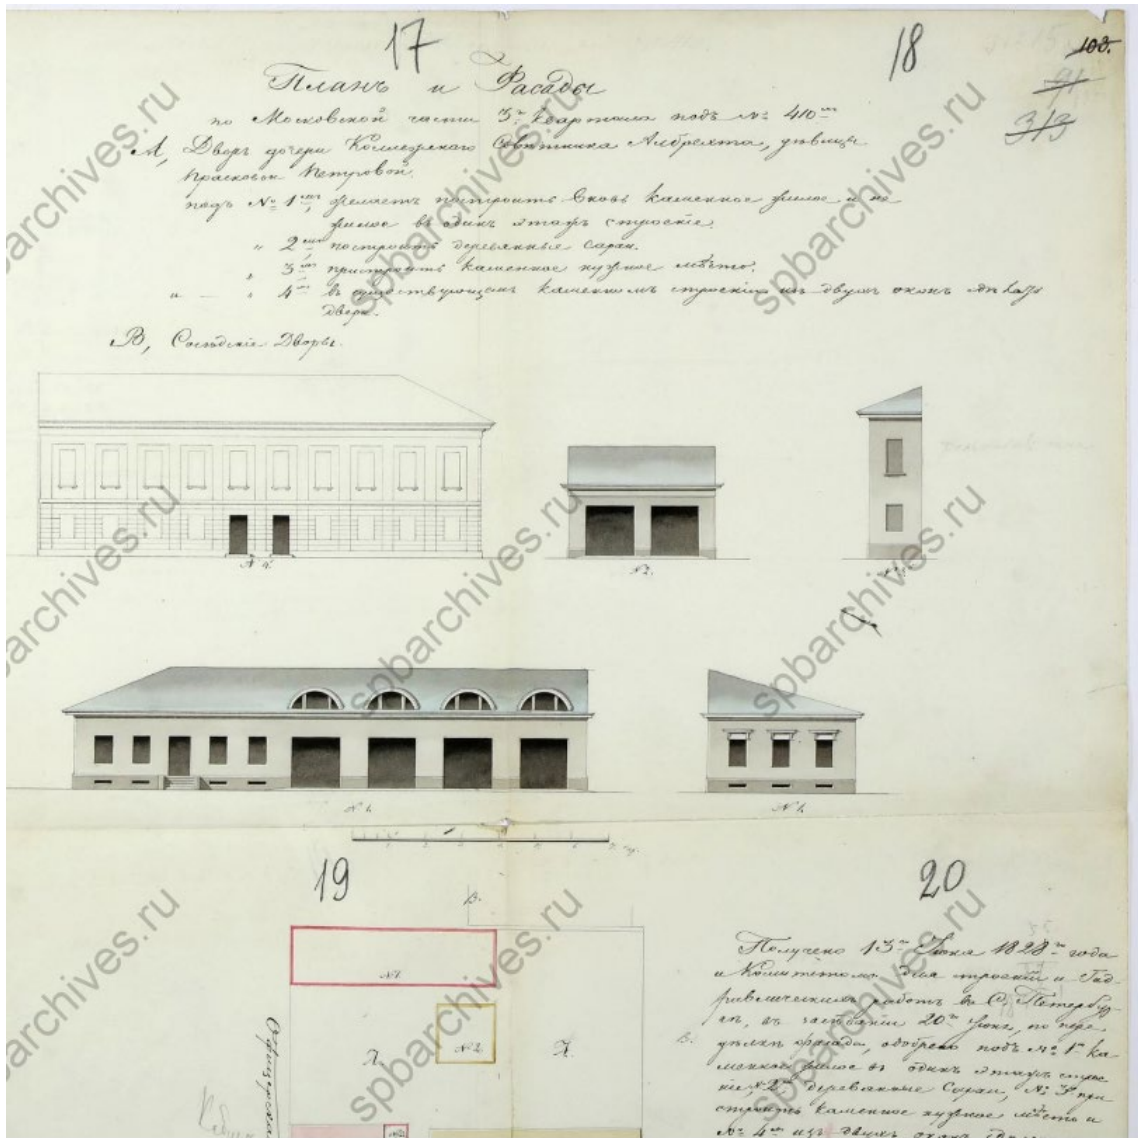 17
18
103.
91
313
Планъ и Фасады
по Московской части 3го квартала подъ № 410мъ
А, Дворъ дочери Коллежскаго Советника Албрехта, девицы
Прасковьи Петровой.
подъ № 1мъ желаетъ построить вновь каменное жилое и не
жилое въ одинъ этажъ строение.
" 2мъ построить деревянные сараи.
" 3мъ пристроить каменное нужное место.
" — " 4мъ въ существующемъ каменномъ строении изъ двухъ оконъ
двери.
В, Соседские Дворы.
N 4.
N 2.
N 1.
N 1.
19
20
В.
№ 1
№ 2
А.
А.
В.
Офицерская
Получено 13го Июня 1828го года
и Комитетомъ для строений и Гид-
равлическихъ работъ въ С. Петербур-
ге, въ заседании 20го Июня, по пере-
делке фасада, одобрено подъ № 1мъ ка-
менное жилое въ одинъ этажъ строе-
ние, № 2 деревянные Сараи, № 3 при-
строить каменное нужное место и
№ 4мъ изъ двухъ оконъ
spbarchives.ru
spbarchives.ru
spbarchives.ru
spbarchives.ru
spbarchives.ru
spbarchives.ru
spbarchives.ru
spbarchives.ru
spbarchives.ru